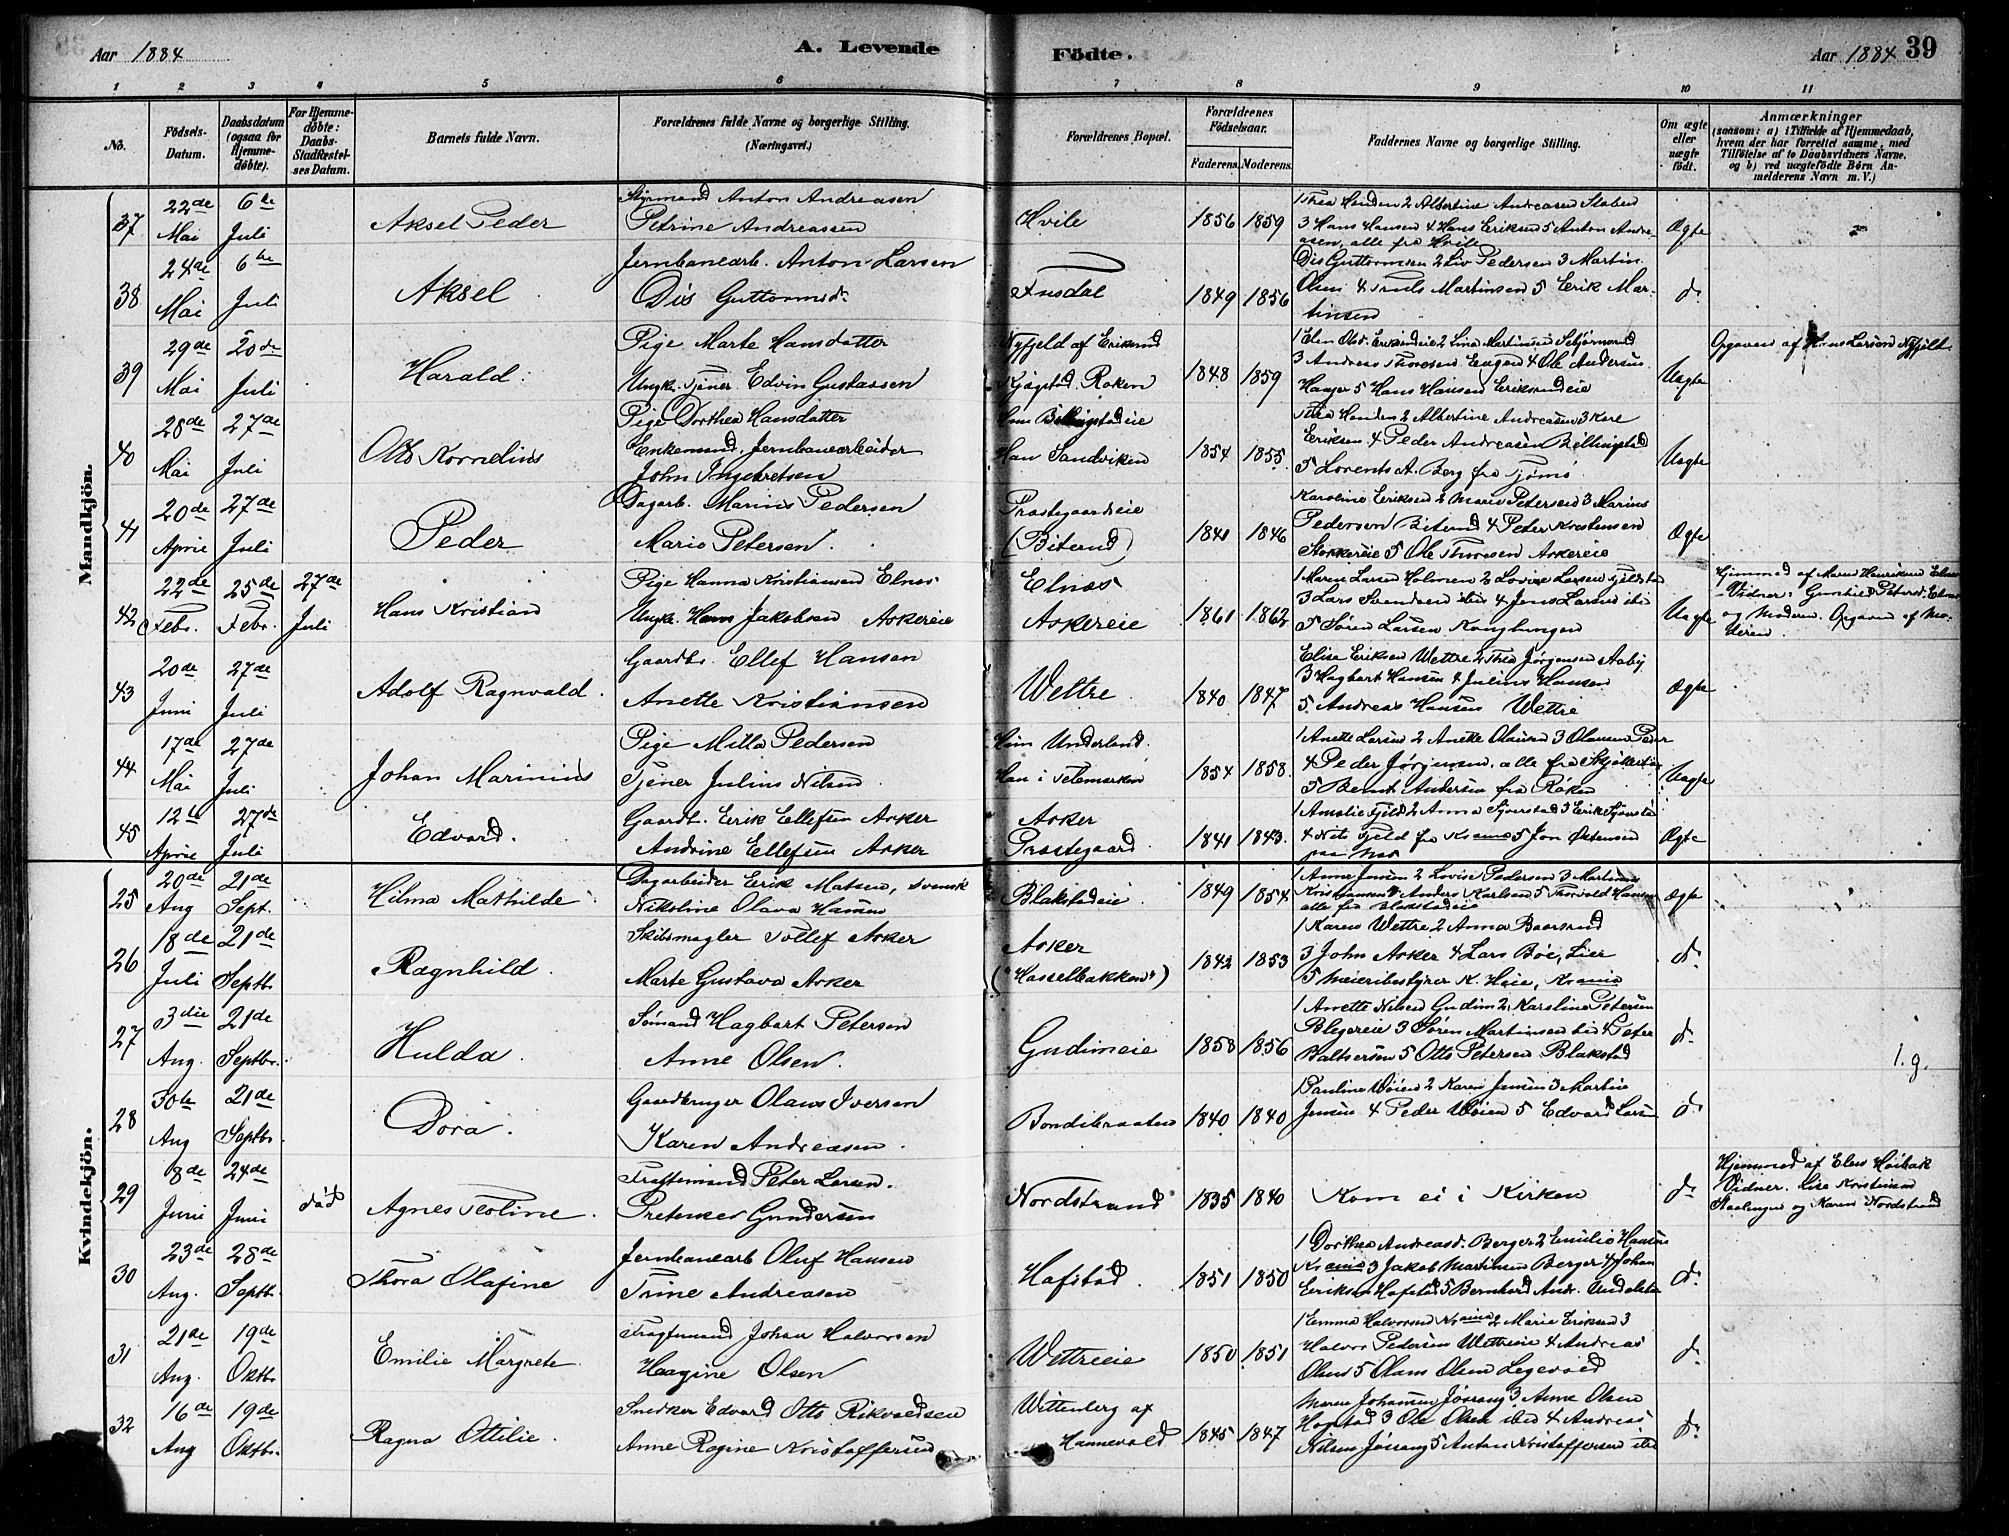 Aar 1884
A. Levende
Födte.
Aar 1884 39
1 2 3 4 5 6 7 8 9 10 11
No.
Födsels-Datum.
Daabsdatum (ogsaa for Hjemme-döbte).
For Hjemme-döbte: Daabs-Stadfæstel-ses Datum.
Barnets fulde Navn.
Forældrenes fulde Navne og borgerlige Stilling. (Næringsvei.)
Forældrenes Bopæl.
Forældrenes Födselsaar.
Faderens. Moderens.
Faddernes Navne og borgerlige Stilling.
Om ægte eller uægte födt.
Anmærkninger
(saasom: a) i Tilfælde af Hjemmedaab, hvem der har forrettet samme, med Tilföielse af to Daabsvidners Navne, og b) ved uægtefödte Börn An-melderens Navn m. V.)
Mandkjön.
37 22de Mai 6te Juli Aksel Peder
Styrmand Anton Andreasen
Petrine Andreassen
Hvile 1856 1859
3 Hans Hansen 4 Hans Eriksen 5 Anton Andre-
asen, alle fra Hvile
Ægte
38 24de Mai 6te Juli Aksel
Jernbanearb. Anton Larsen
Dis Guttormsd.
1849 1856
Dis Guttormsen 2 Liv Pedersen 3 Martin
Olsen 4 Truls Martinsen 5 Erik Mar-
tinsen
do
39 29de Mai 20de Juli Harald.
Pige Marte Hansdatter
Ungk. Tjener Edvin Gustavsen
Nyfjeld af Eriksrud
Røken
1848 1859
3 Andreas Thoresen Engen 4 Ole Andersen
Haager 5 Hans Hansen Eriksrudeie
Uægte
Opgaven af Hans Larsen Nyfjeld
40 28de Mai 27de Juli Otto Kornelius
Pige Dorthea Hansdatter
Enkemand, Jernbanearbeider
John Ingebretsen
Hun Billingstadeie
Han Sandviken
1854 1855
Thea Handen 2 Albertine Andreasen 3 Kare
Eriksen 4 Peder Andreasen Billingstad
5 Lorents A. Berg fra Tjømø
Uægte
41 20de April 27de Juli Peder
Dagarb. Marius Pedersen
Marie Petersen.
Præstegaardseie
(Biterud)
1841 1846
Karoline Eriksen 2 Marie Petersen 3 Marius
Pedersen Biterud 4 Peter Kristensen
5 Ole Thoresen Askereie
Ægte
42 22de Febr. 25de Febr. 27de Juli Hans Kristian
Pige Hanna Kristiansen Elnes
Ungk. Hans Jakobsen Askereie
Elnes
Askereie
1861 1862
1 Maren Larsen Holmen 2 Lovise Larsen
3 Lars Svendsen ibid 4 Jens Larsen ibid
5 Søren Larsen Konglungen
Uægte
Hjemmed. af Maren Henriksen Elnes
Vidner: Gunhild Petersd. Elnes
og Moderen. Opgaven af Mo-
deren.
43 20de Juni 27de Juli Adolf Ragnvald.
Gaardbr. Ellef Hansen
Anette Kristiansen
Wettre 1840 1847
Elise Eriksen Wettre 2 Thea Jørgensen Aaby
3 Hagbart Hansen 4 Julius Hansen
5 Andreas Hansen Wettre
Ægte
44 17de Mai 27de Juli Johan Marinius
Pige Milla Pedersen
Tjener Julius Nilsen
Hun Underland.
Han i Telemarken
1854 1858.
1 Anette Larsen 2 Anette Olausen 3 Olausen Peder
4 Peder Jørgensen, alle fra
5 Bernt Andersen fra Røken
Uægte
45 12te April 27de Juli Edvard.
Gaardb. Erik Ellefsen Asker
Andrine Ellefsen Asker
Asker
Præstegaard.
1841 1843.
1 Amalie Fjeld 2 Anna
4 Nils Fjeld fra Krania 5 Jon Østensen
paa Næs
Ægte
Kvindekjön.
25 20de Aug 21de Sept. Hilma Mathilde
Dagarbeider Erik Matsen, svensk
Nikoline Olava Hansen
Blakstadeie. 1849 1854
1 Anne Jensen 2 Lovise Pedersen 3 Martinus
Kristiansen 4 Anders Karlsen 5 Thorvald Hansen
alle fra Blakstadeie
Ægte
26 18de Juli 21de Septbr. Ragnhild.
Skibsmægler Tollef Asker
Marte Gustava Asker
Asker
("Hasselbakken")
1842 1853
1 Karen Wettre 2 Anna Baarsrud
3 John Asker 4 Lars Böe, Lier
5 Meieribestyrer K. Høie, Krania
do
27 3die Aug. 21de Septbr. Hulda.
Sømand Hagbart Petersen
Anne Olsen.
Gudimeie 1858 1856
1 Anette Nilsen Gudim 2 Karoline Petersen
3 Søren Martinsen ibid 4 Peter
Baltsersen 5 Otto Petersen Blakstad
do
1. g.
28 30te Aug 21de Septbr. Dora.
Gaardbruger Olaus Iversen
Karen Andreasen.
Bondibraaten 1840 1840
1 Pauline Wøien 2 Karen Jensen 3 Martin
Jensen 4 Peder Wøien 5 Edvard Larsen
do
29 8de Juni 24de Juni død Agnes Teoline.
Fragtemand Peter Larsen.
Gundersen
Nordstrand 1835 1840
Kom ei i Kirken
do
Hjemmed. af Elen Høibak
Vidner. Lise Kristiansen
og Karen Nordstrand
30 23de Aug. 28de Septbr. Thora Olafine
Jernbanearb Oluf Hansen
Trine Andreasen
Hofstad. 1851 1850
1 Dorthea Andreasd. Berger 2 Emilie Hansen
Krania 3 Jakob Martinsen Berger 4 Johan
Eriksen Hofstad 5 Bernhard Andr.
do
31 21de Aug. 19de Oktbr. Emilie Margrete.
Fragtemand Johan Halvorsen
Haagine Olsen
Wettreeie 1850 1851
1 Emma Halvorsen Krania 2 Marie Eriksen 3
Halvor Pedersen Wettreeie 4 Andreas
Olsen 5 Olaus Olsen
do
32 16de Aug 19de Oktbr. Ragna Ottilie.
Snedker Edvard Otto Rikvaldsen
Anne Ragine Kristoffersen
Wittenberg af
Hannevold
1845 1847
Maren Johansen Jøssang 3 Anne Olsen
Hogstad 3 Ole Olsen ibid 4 Andreas
Nilsen Jøssang 5 Anton Kristoffersen ibid
do